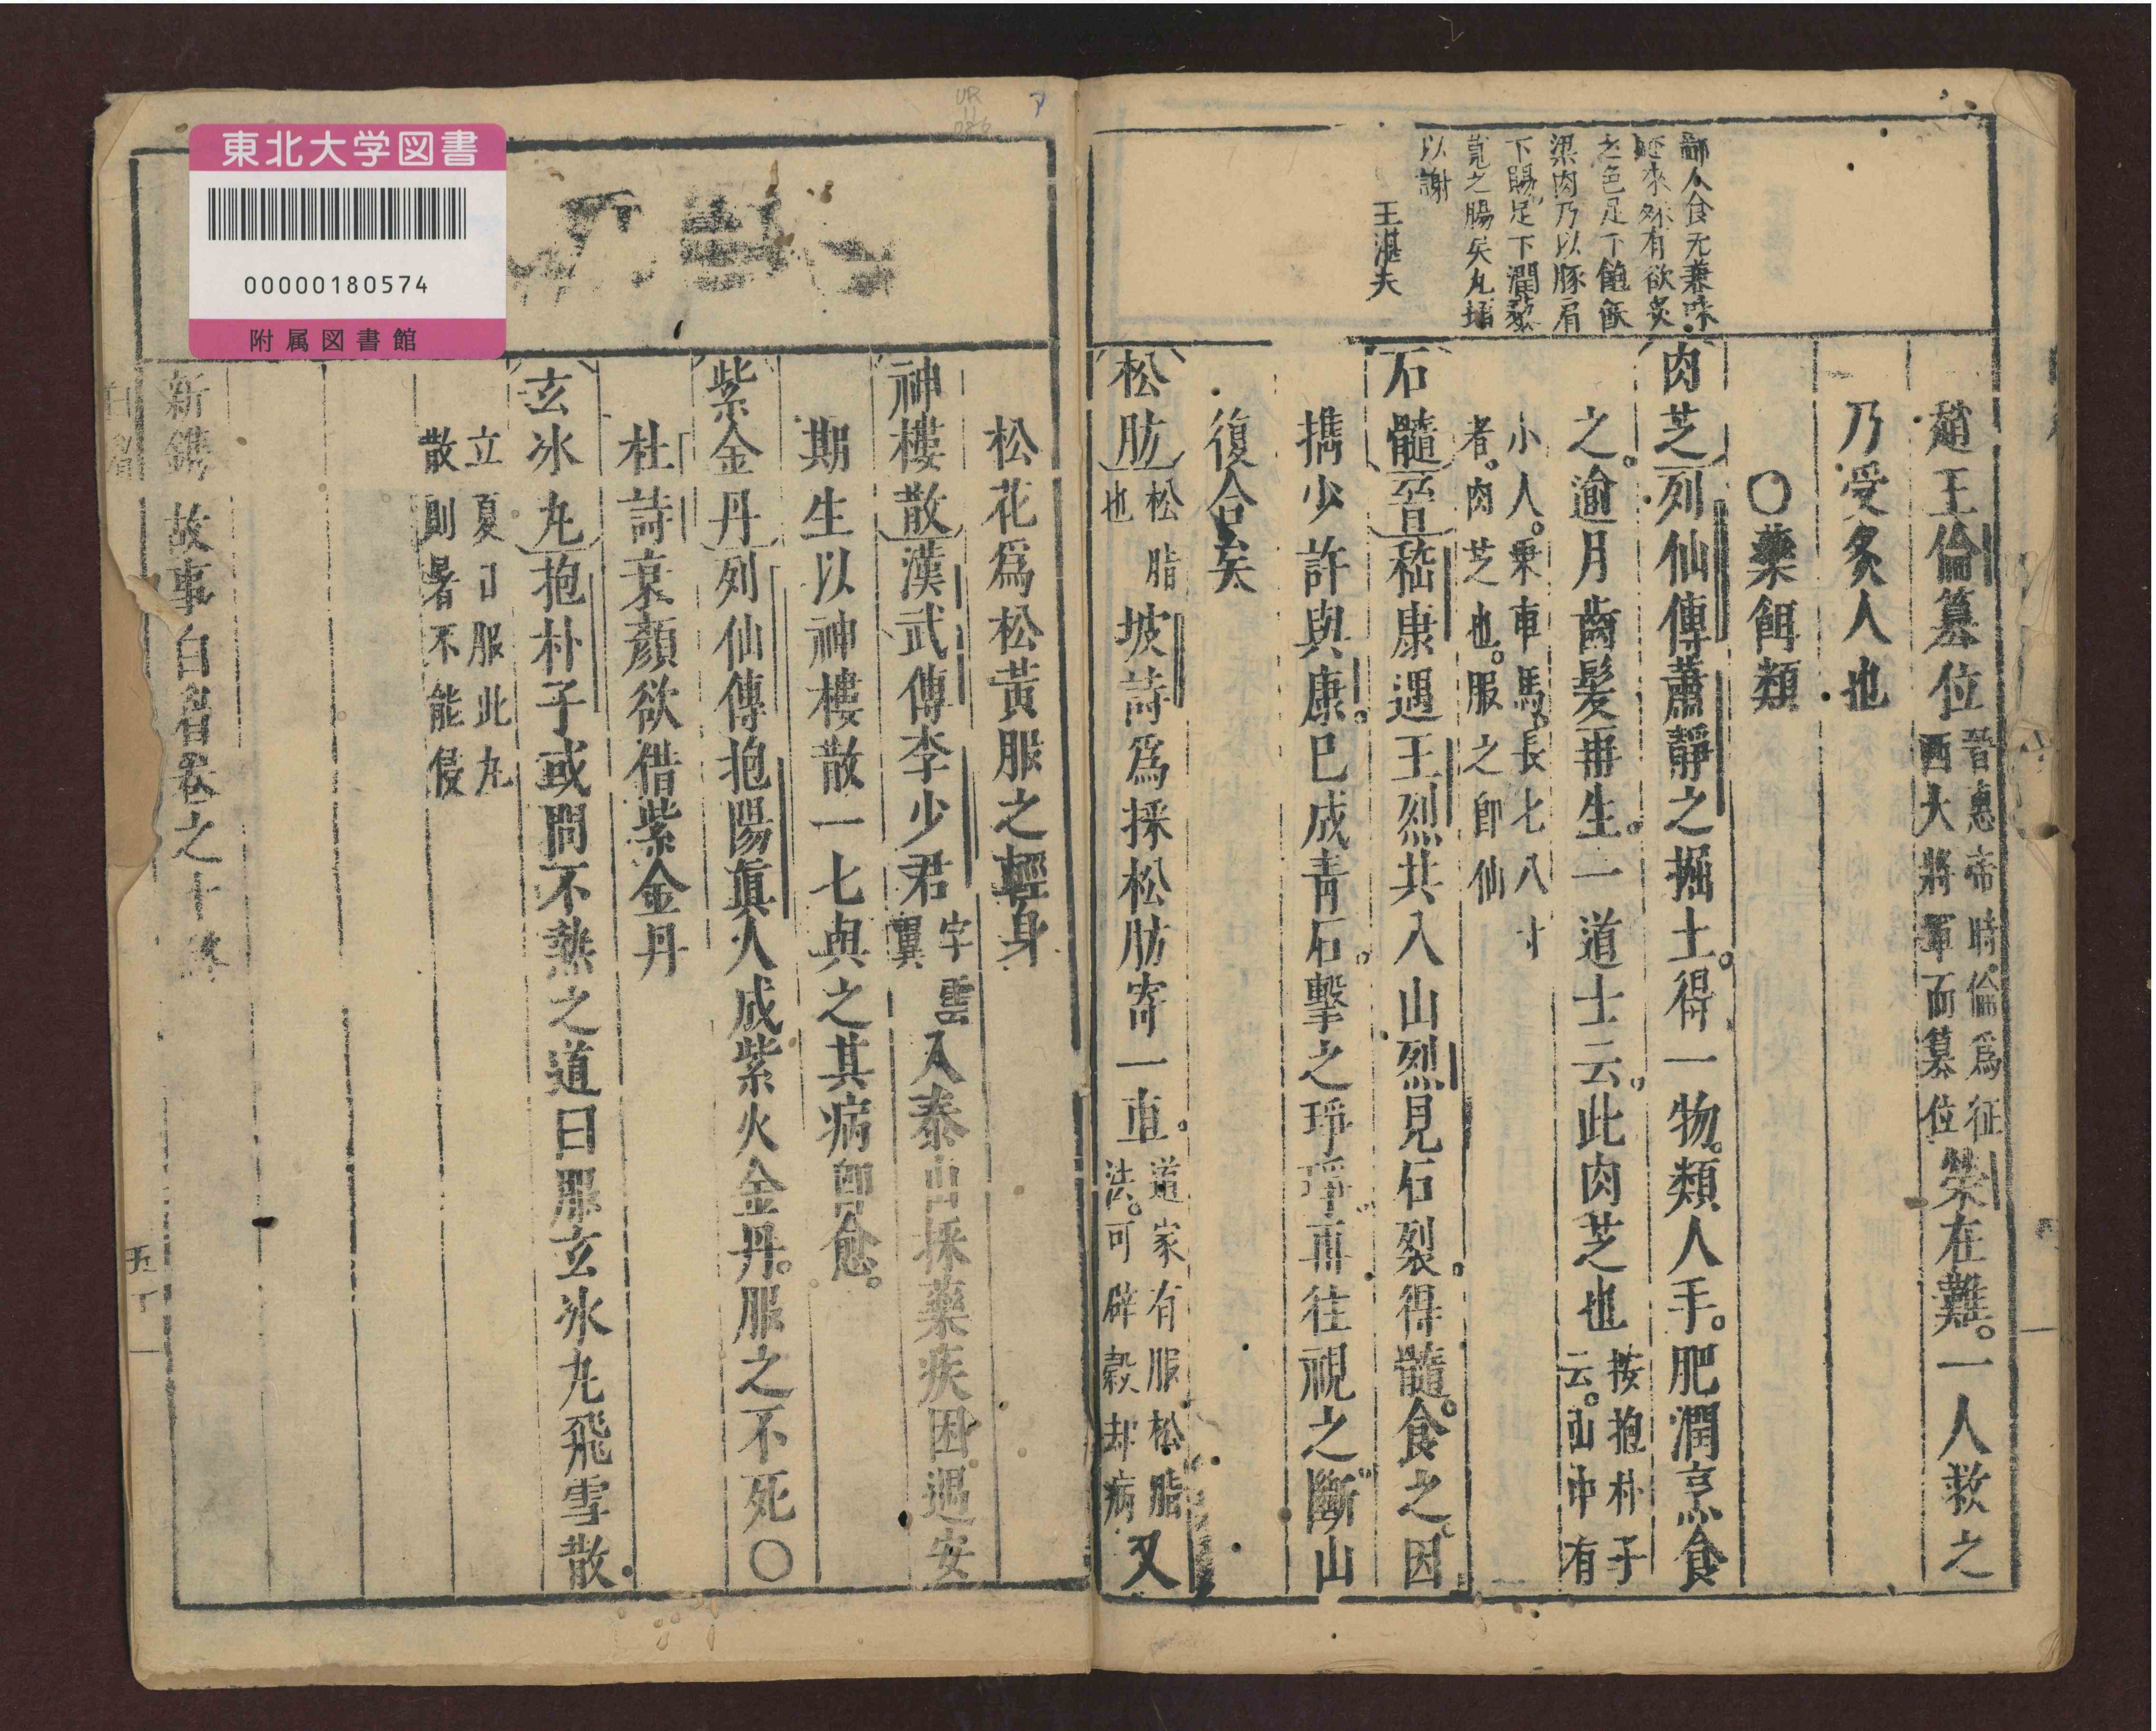 鄰人食无兼味
之色足下飽飫
梁肉乃以豚肩
下賜足下潤藜
莧之腸矣
以謝
王湛夫
趙王倫篡位晉惠帝時倫爲征西大將軍而篡位榮在難。一人救之
乃受炙人也
〇藥餌類
肉芝列仙傳蕭靜之掘土。得一物。類人手。肥潤烹食
之。逾月齒髮再生。一道士云。此肉芝也按抱朴子云。山中有
小人。乘車馬。長七八寸者。肉芝也。服之卽仙
石髓晋嵇康遇王烈共入山烈見石裂。得髓。食之。因
携少許與康。巳成青石。擊之琤琤。再往視之。斷山
復合矣
松肪松脂也坡詩爲採松肪寄一車。道家有服松脂法。可辟穀却病又
松花爲松黃服之輕身
神樓散漢武傳李少君字雲翼入泰山採藥疾困遇安
期生以神樓散一七與之其病卽愈。
紫金丹列仙傳抱陽眞人成紫火金丹。服之不死〇
杜詩衰顏欲借紫金丹
玄冰丸抱朴子或問不熱之道曰服玄冰丸飛雪散
立夏日服此丸散則暑不能侵
新鐫故事白眉卷之十終
白眉
五十一
東北大学図書
00000180574
附属図書館